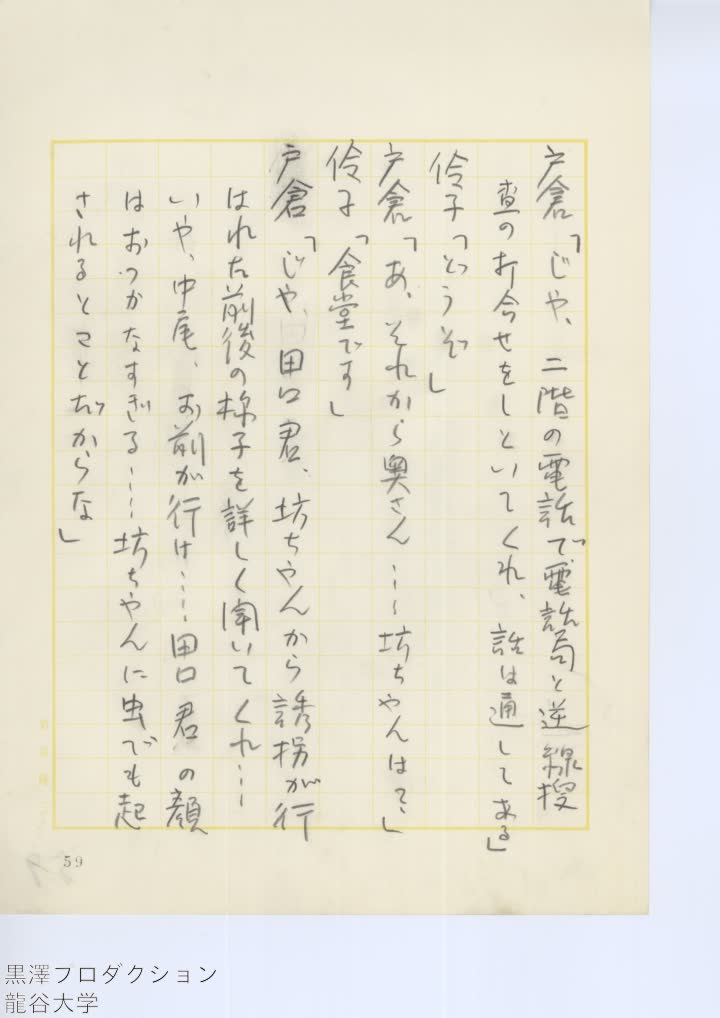 戸倉「じや、二階の電話で、電話局と逆線捜
査の打合せをしといてくれ、話は通してある」
伶子「どうぞ」
戸倉「あ、それから奥さん……坊ちやんは?」
伶子「食堂です」
戸倉「じや、田口君、坊ちやんから誘拐が行
はれた前後の様子を詳しく聞いてくれ……
いや、中尾、お前が行け……田口君の顔
はおつかなすぎる……坊ちやんに虫でも起
されるとことだからな」
59
黒澤プロダクション
龍谷大学